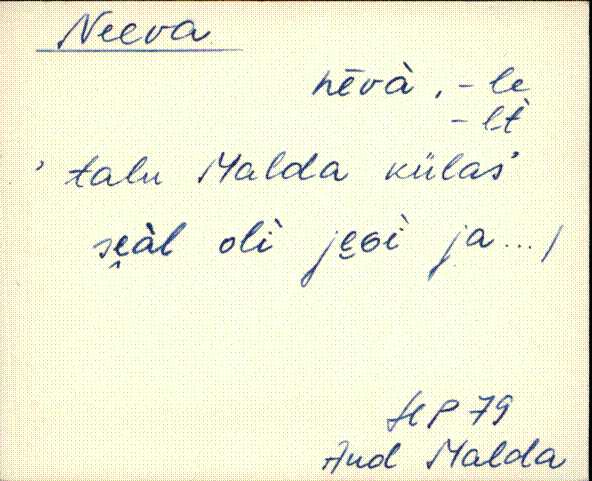 Neeva
nēvà, -le
-lt̀
' talu Malda külas'
se̬àl oli̇̀ je̬si̇̀ ja... /
HP 79
Aud Malda